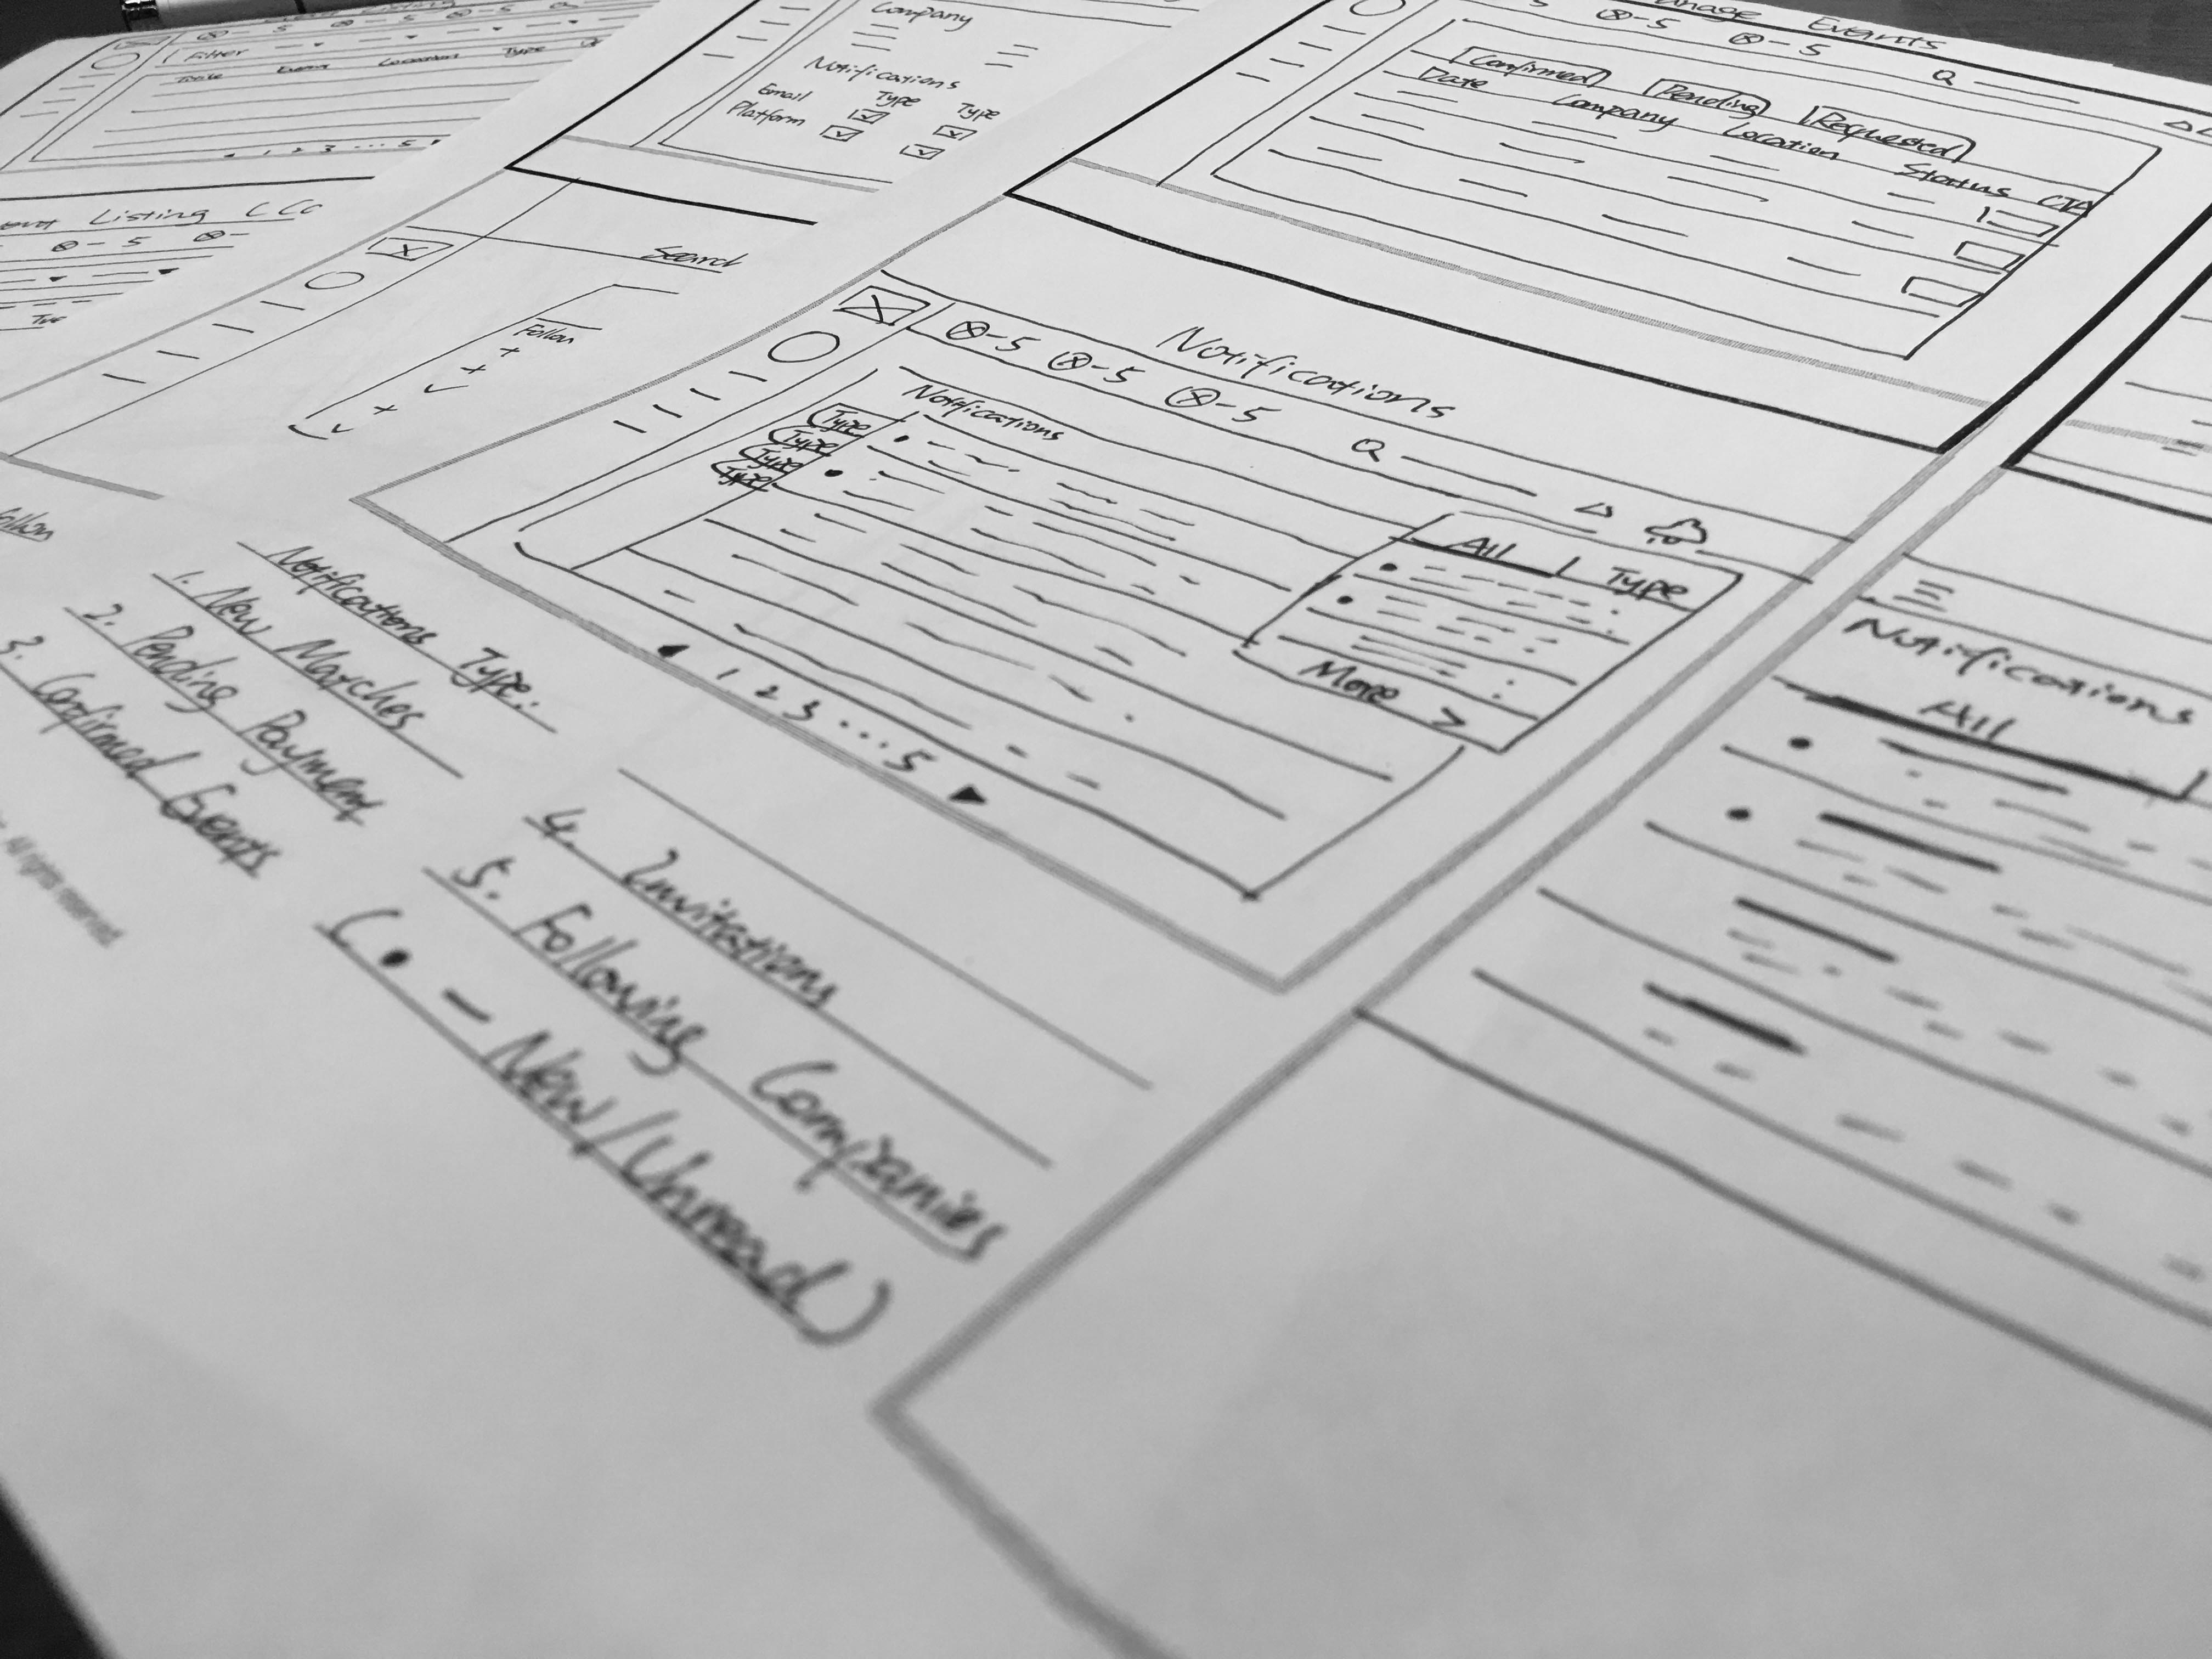 Filter
Event Location Type
1 2 3 ... 5
Listing
5
Company
Notifications
Type Type
Email
Platform
Search
Follow
Events
5 5
Confirmed Pending Requested
Date Company Location Status CTA
Notifications
5 5 5
Notifications
Type
Type
Type
Type
All Type
More >
1 2 3 ... 5
Notifications Type:
1. New Matches
2. Pending Payment
3. Confirmed Events
4. Invitations
5. Following Companies
( • – New/Unread)
All rights reserved.
Notifications
All